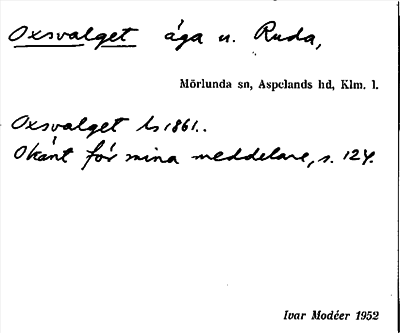 Oxsvalget äga u. Ruda,
Mörlunda sn, Aspelands hd, Klm. l.
Oxsvalget ls 1861..
Okänt för mina meddelare, s. 124.
Ivar Modéer 1952